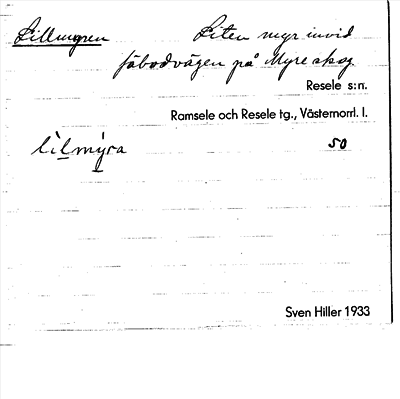 Lillmyren Liten myr invid
fäbodvägen på Myre skog.
Resele s:n.
Ramsele och Resele tg., Västernorrl. l.
lìlmýra 50
Sven Hiller 1933